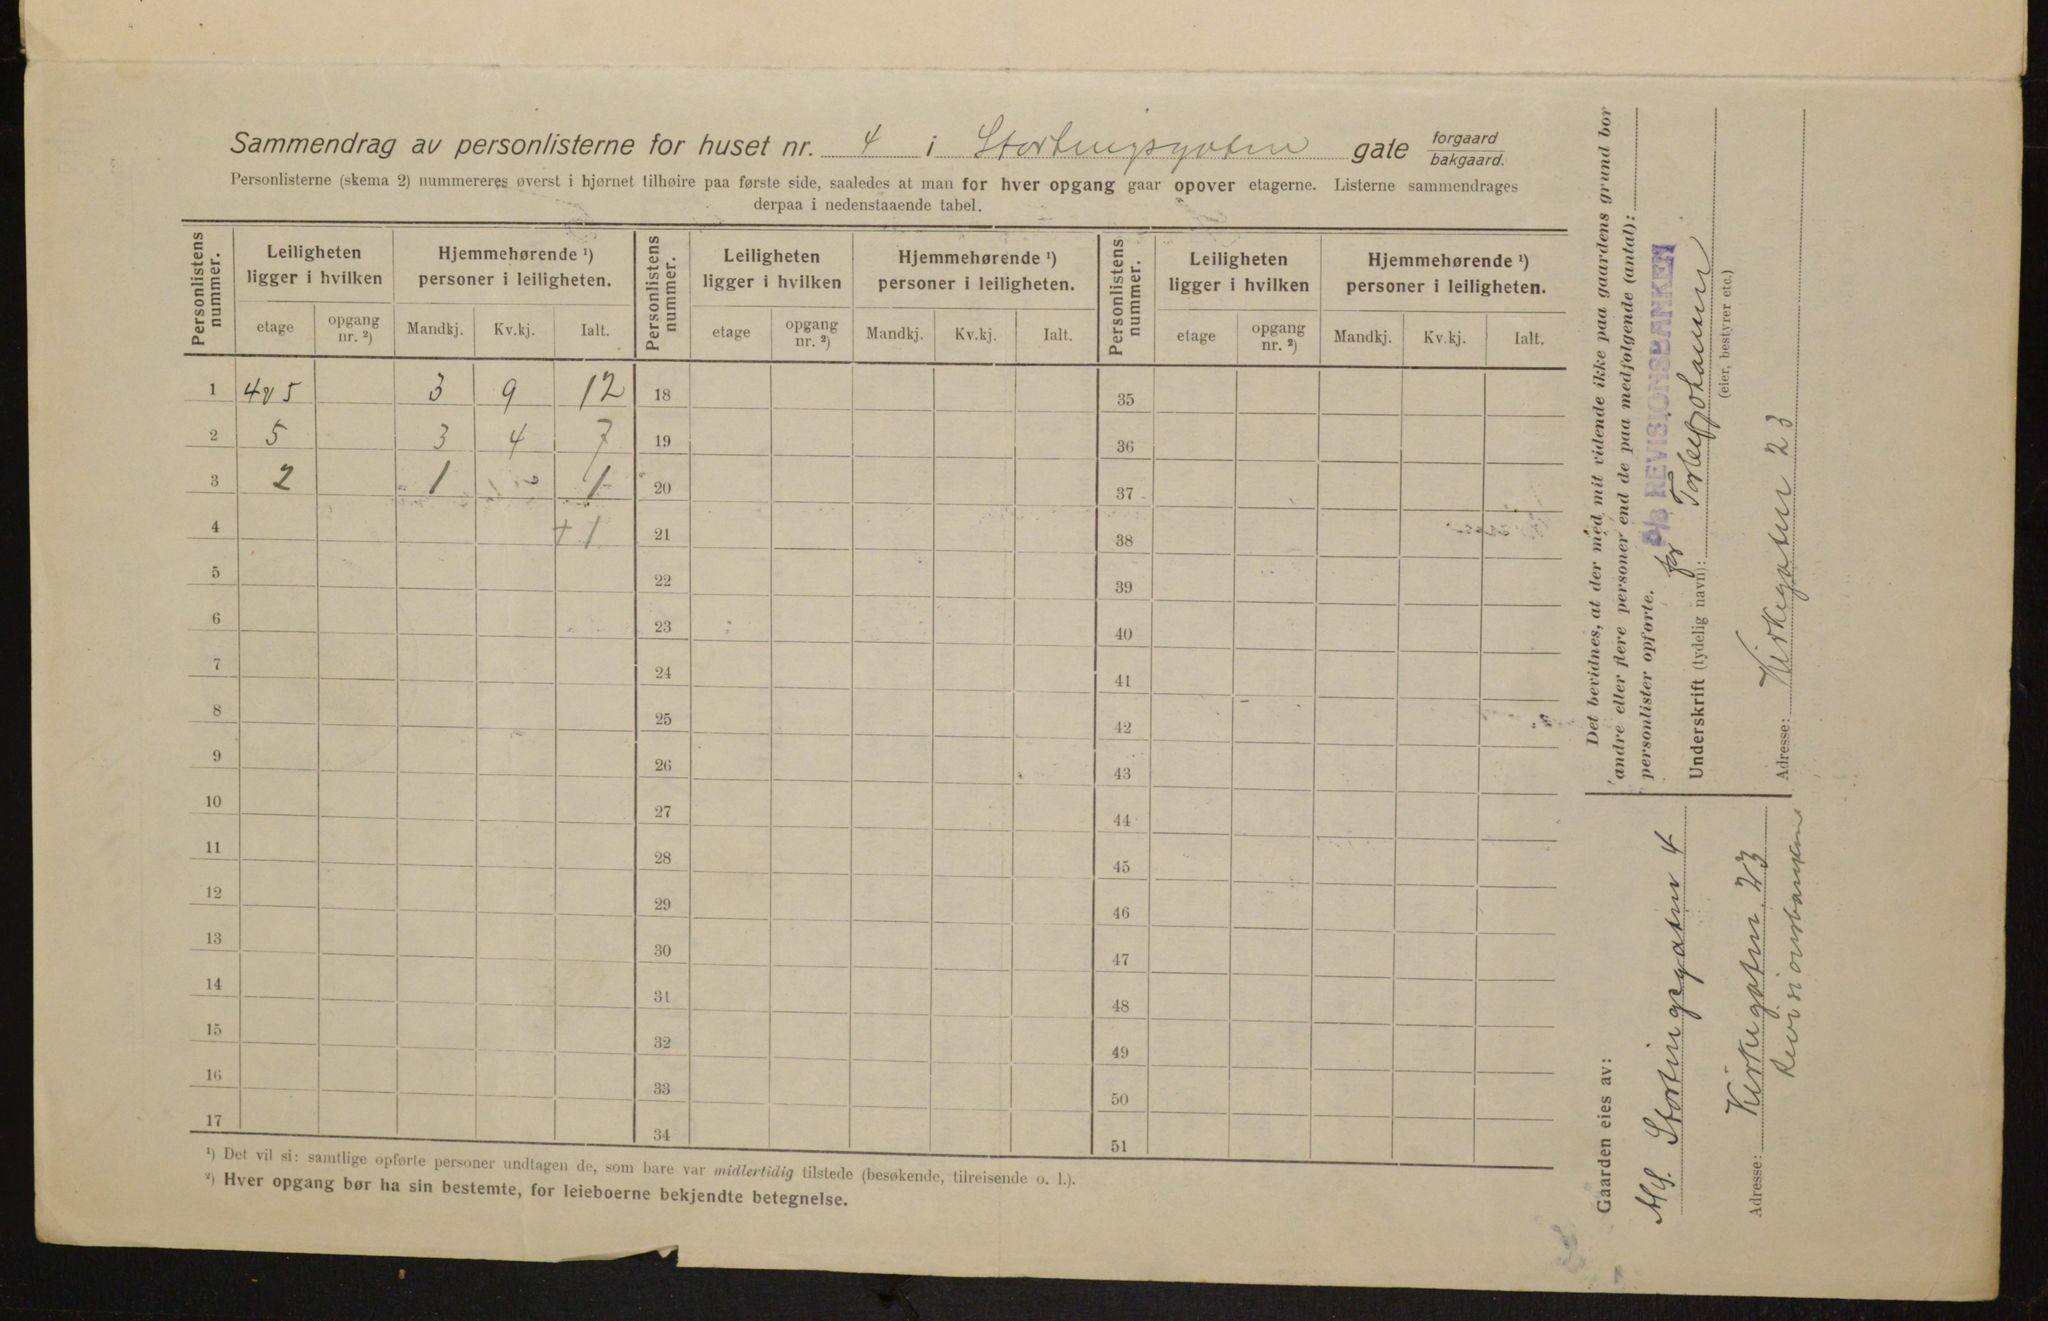 Sammendrag av personlisterne for huset nr. 4 i Stortingsgaten gate forgaard bakgaard.
Personlisterne (skema 2) nummereres øverst i hjørnet tilhøire paa første side, saaledes at man for hver opgang gaar opover etagerne. Listerne sammendrages
derpaa i nedenstaaende tabel.
Personlistens nummer. Leiligheten ligger i hvilken Hjemmehørende ¹) personer i leiligheten. Personlistens nummer. Leiligheten ligger i hvilken Hjemmehørende ¹) personer i leiligheten. Personlistens nummer. Leiligheten ligger i hvilken Hjemmehørende ¹) personer i leiligheten.
etage opgang nr. ²) Mandkj. Kv.kj. Ialt. etage opgang nr. ²) Mandkj. Kv.kj. Ialt. etage opgang nr. ²) Mandkj. Kv.kj. Ialt.
1 4 & 5 3 9 12 18 35
2 5 3 4 7 19 36
3 2 1 1 20 37
4 +1 21 38
5 22 39
6 23 40
7 24 41
8 25 42
9 26 43
10 27 44
11 28 45
12 29 46
13 30 47
14 31 48
15 32 49
16 33 50
17 34 51
¹) Det vil si: samtlige opførte personer undtagen de, som bare var midlertidig tilstede (besøkende, tilreisende o. l.).
²) Hver opgang bør ha sin bestemte, for leieboerne bekjendte betegnelse.
Det bevidnes, at der med mit vidende ikke paa gaardens grund bor
andre eller flere personer end de paa medfølgende (antal):
personlister opførte.
A/S REVISIONSBANKEN
for
Underskrift (tydelig navn): Torleif Johannsen
(eier, bestyrer etc.)
Adresse: Kirkegaten 23
Gaarden eies av:
A/S. Stortingsgaten 4
Adresse: Kirkegaten 23
Revisionsbanken